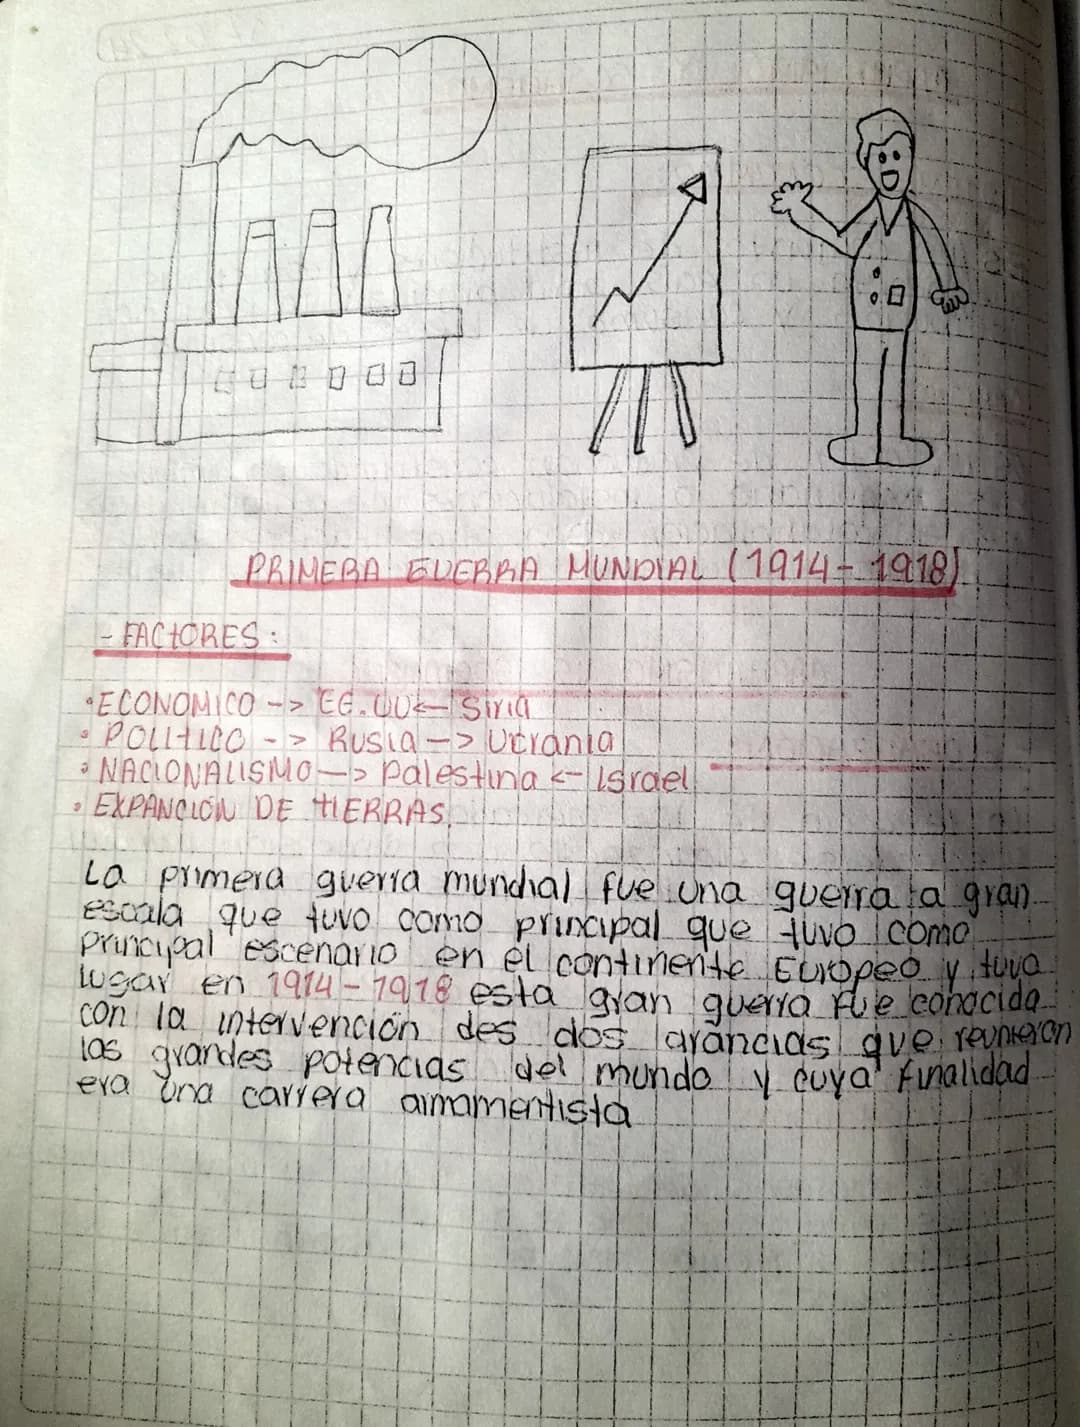 PRIMERA GUERRA MUNDIAL (1914 - 1918)
- FACTORES:
• ECONOMICO --> EE.UU <-- Siria
• POLITICO --> Rusia --> Ucrania
• NACIONALISMO --> Palestina <- Israel
• EXPANCIÓN DE TIERRAS.
La primera guerra mundial fue una guerra a gran
escala que tuvo como principal que tuvo como
principal escenario en el continente Europeo y tuvo
lugar en 1914 - 1918 esta gran guerra fue conocida
con la intervención des dos que reunieron
las grandes potencias del mundo y cuya finalidad
era una carrera armamentista